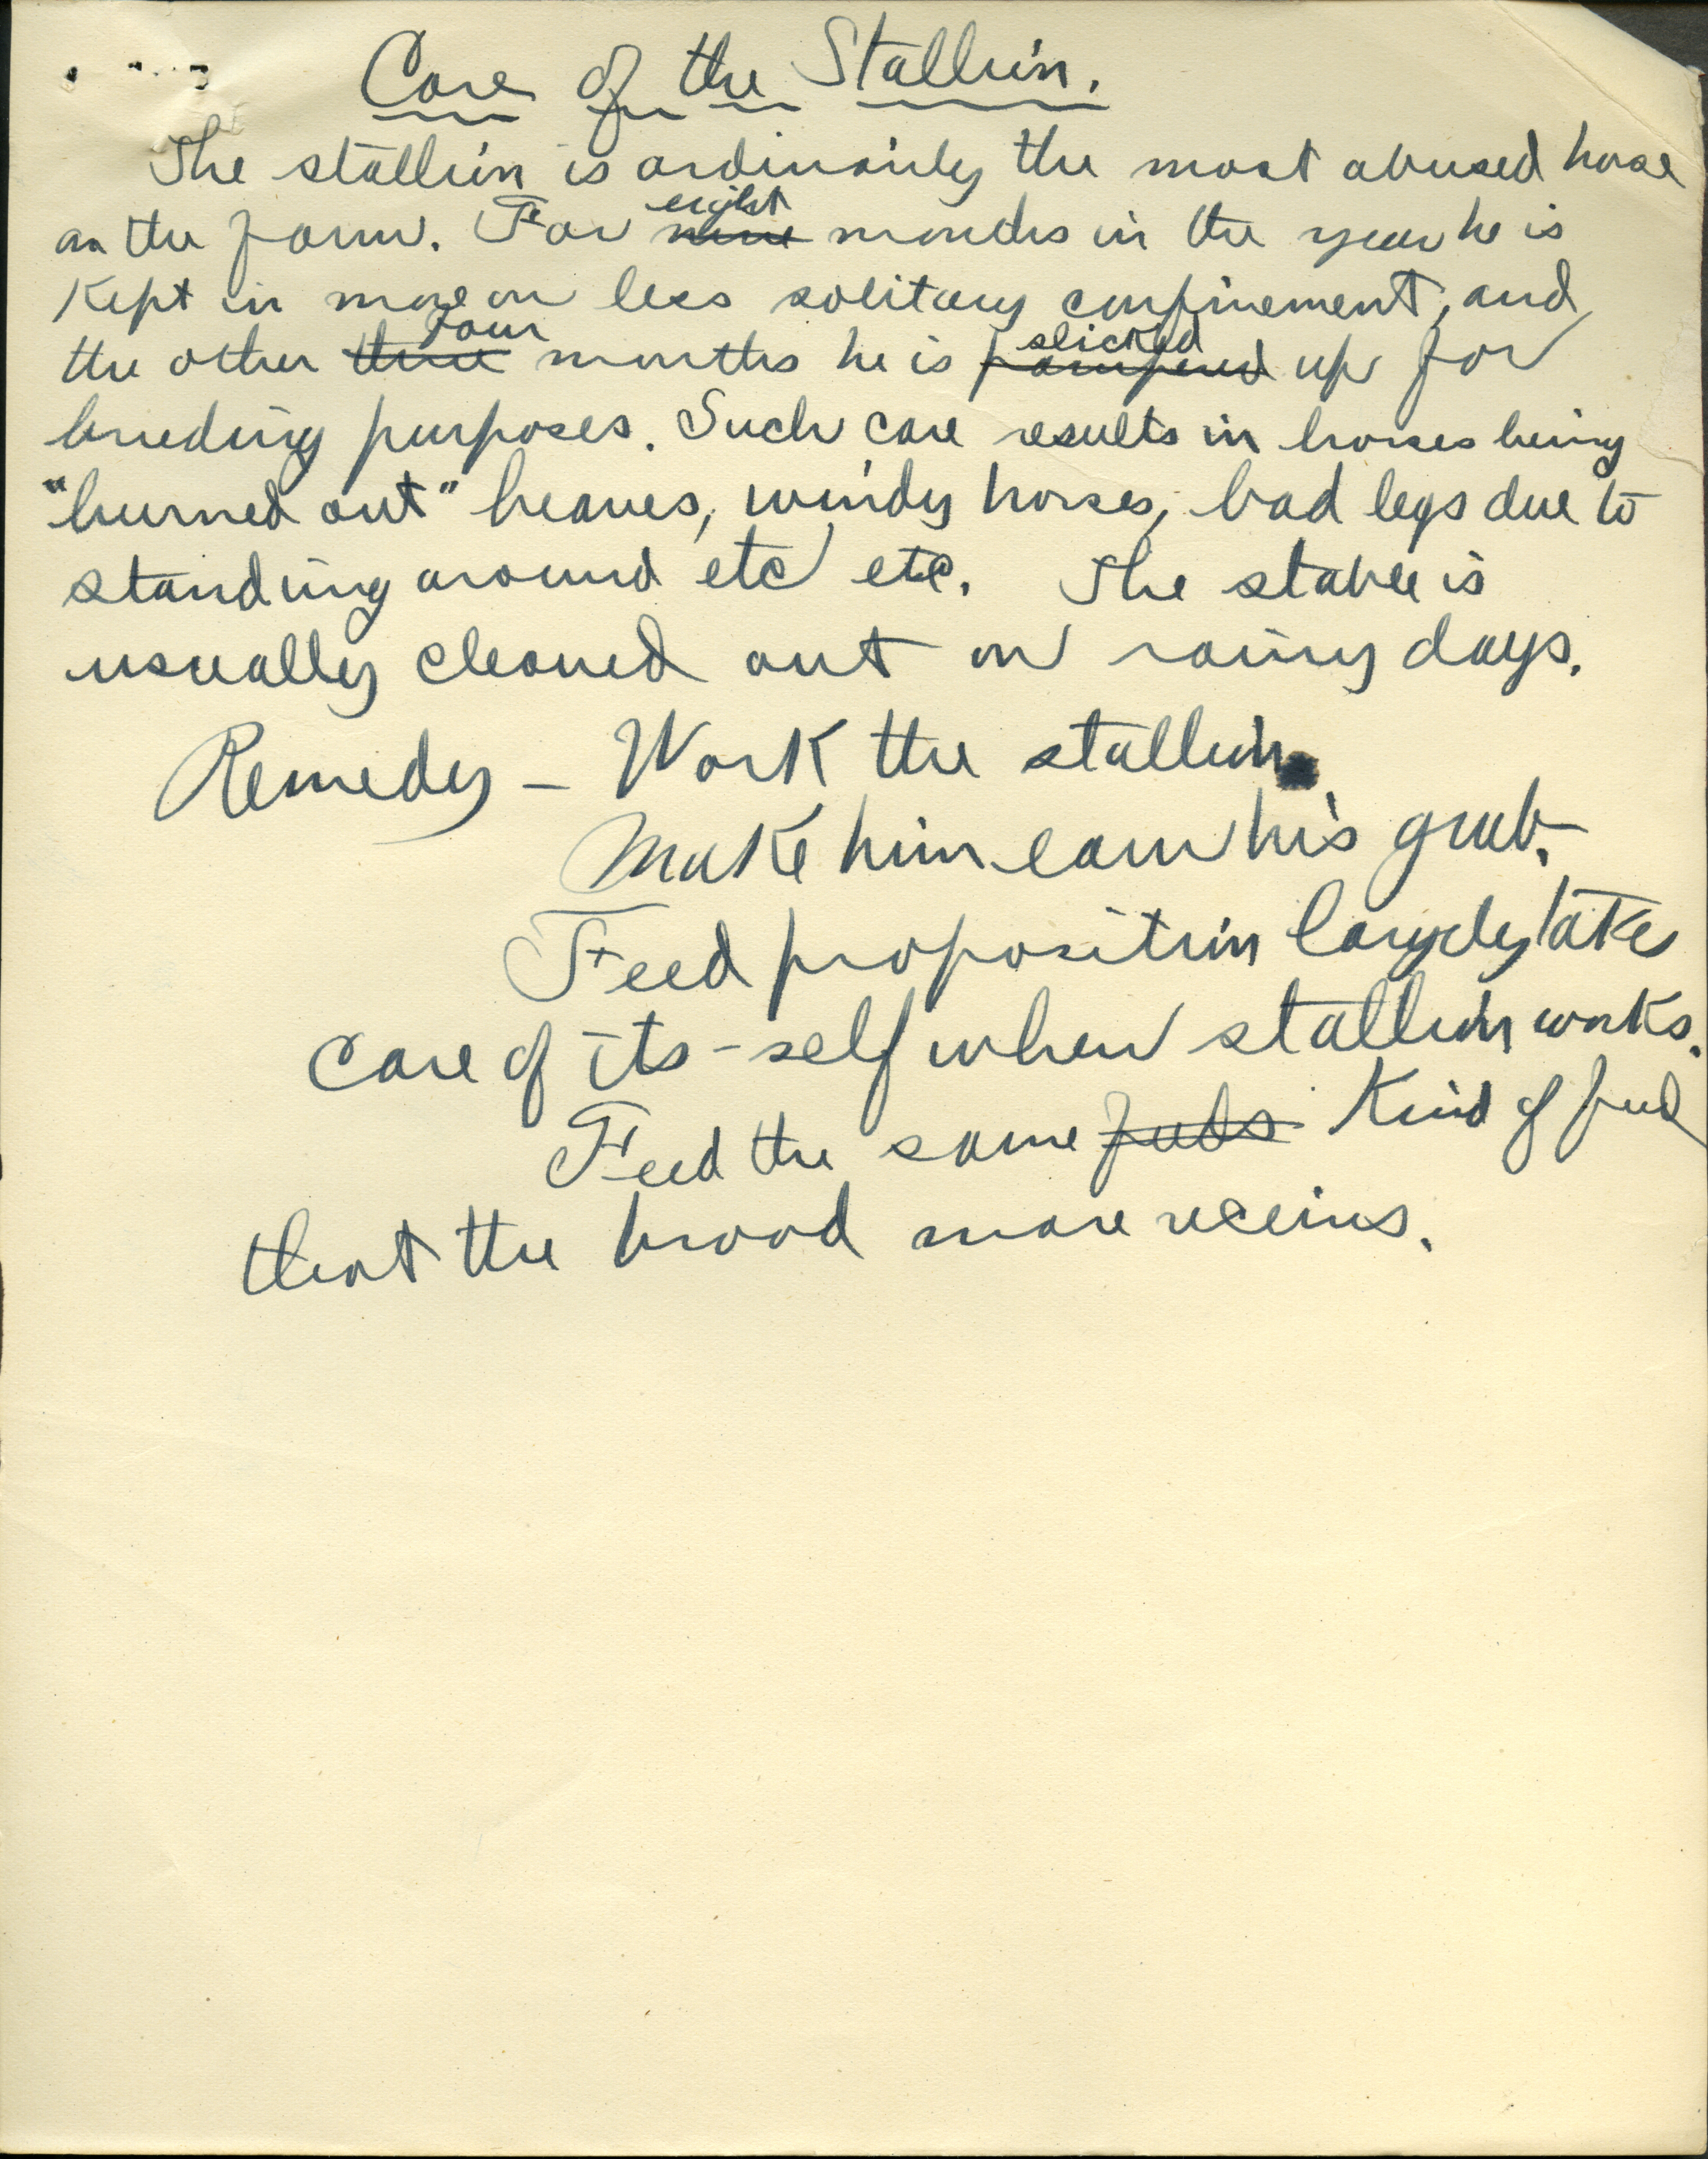 Care of the Stallion.
The stallion is ordinarily the most abused horse
on the farm. For nine eight months in the year he is
Kept in more or less solitary confinement, and
the other three Four months he is pampered slicked up for
breeding purposes. Such care results in horses being
"burned out" heaves, windy horses, bad legs due to
standing around etc etc. The stable is
usually cleaned out on rainy days.
Remedy - Work the stallion.
Make him earn his grub.
Feed proposition largely take
care of its-self when stallion works.
Feed the same feeds Kind of feed
that the brood mare receives.